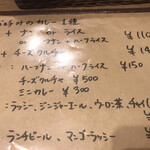 お好みのカレー 1種
+ ナン or ライス ¥110
or ハーフナン・ハーフライス
+ チーズクルチャ ¥14
: ハーフナン・ハーフライス ¥150
チーズクルチャ ¥500
ミニカレー ¥300
:ラッシー、ジンジャーエール、ウーロン茶、チャイ
ランチビール、マンゴーラッシー